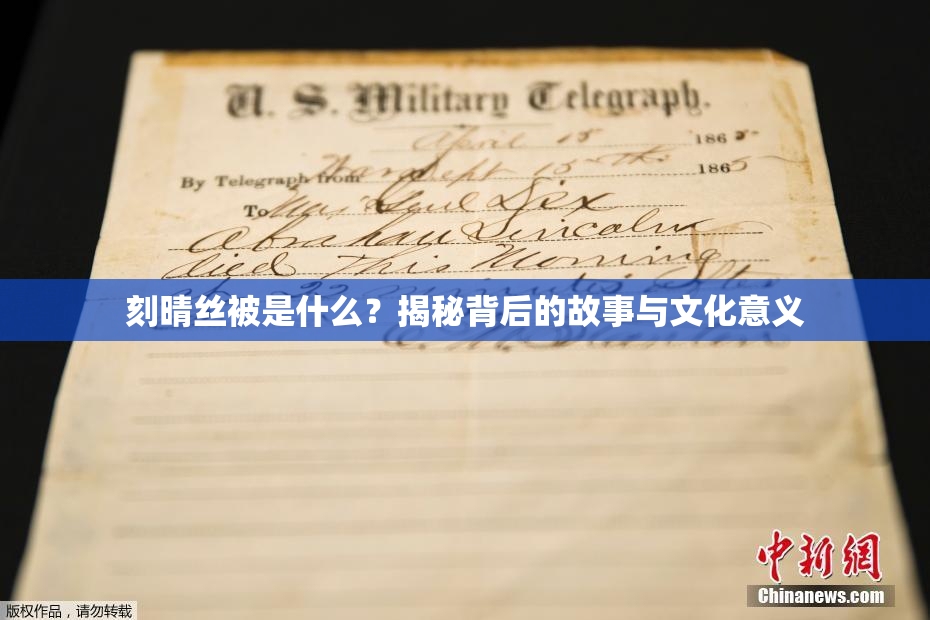 U. S. Military Telegraph.
April 15 1865
By Telegraph from War Dept 15th 1865
To Maj Genl Dix
Abraham Lincoln
died This Morning
at 22 minutes after
刻晴丝被是什么？揭秘背后的故事与文化意义
E. M. Stanton
中新網
Chinanews.com
版权作品，请勿转载